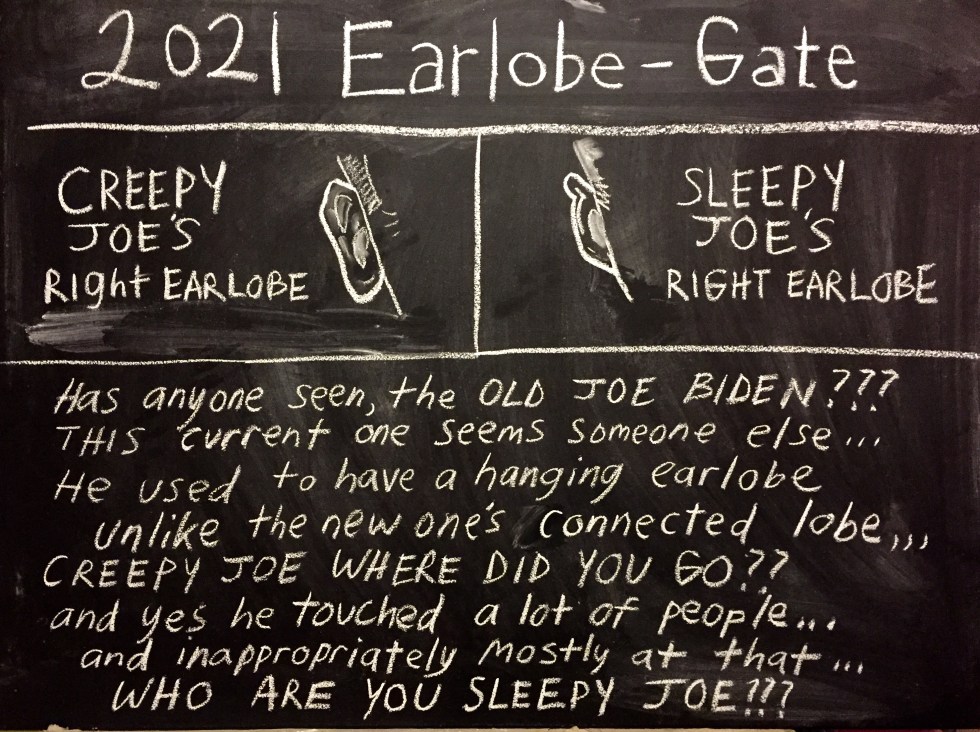 2021 Earlobe-Gate
CREEPY
JOE'S
Right EARLOBE
SLEEPY
JOE'S
RIGHT EARLOBE
Has anyone seen, the OLD JOE BIDEN???
THIS current one seems someone else...
He used to have a hanging earlobe
unlike the new one's connected lobe,,,
CREEPY JOE WHERE DID YOU GO??
and yes he touched a lot of people...
and inappropriately mostly at that...
WHO ARE YOU SLEEPY JOE???